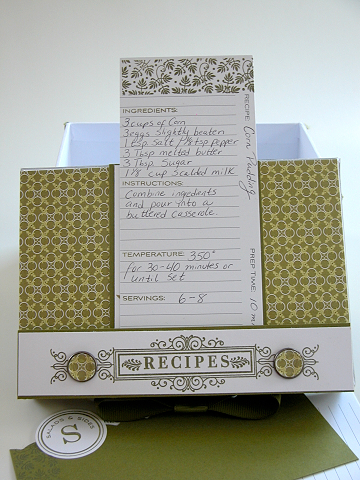 RECIPE: Corn Pudding
PREP TIME: 10 m
INGREDIENTS:
3 cups of Corn
3 eggs slightly beaten
1 tsp. salt / 1/8 tsp pepper
3 Tbsp melted butter
3 Tbsp. Sugar
cup scalded milk
INSTRUCTIONS:
Combine ingredients
and pour into a
buttered casserole.
TEMPERATURE: 350°
for 30-40 minutes or
until set
SERVINGS: 6-8
RECIPES
SALADS & SIDES
S